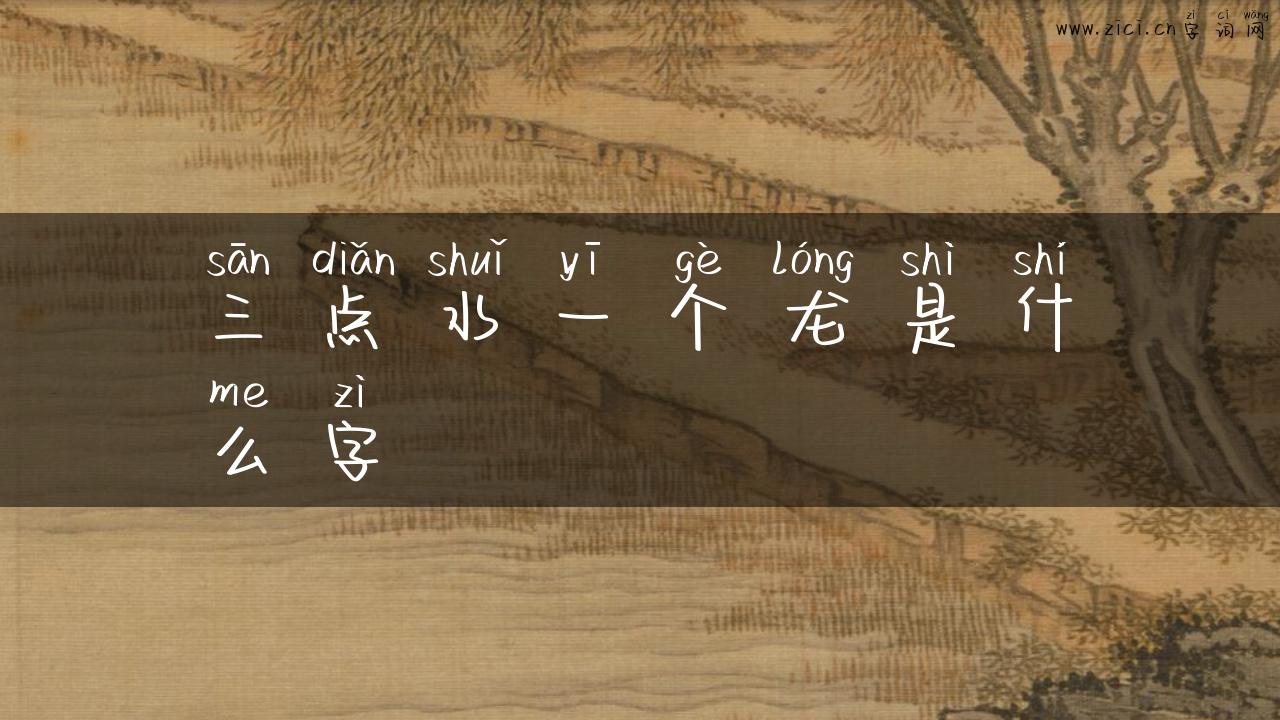 zì cí wǎng
www.zici.cn 字 词 网
sān diǎn shuǐ yī gè lóng shì shí
三 点 水 一 个 龙 是 什
me zì
么 字